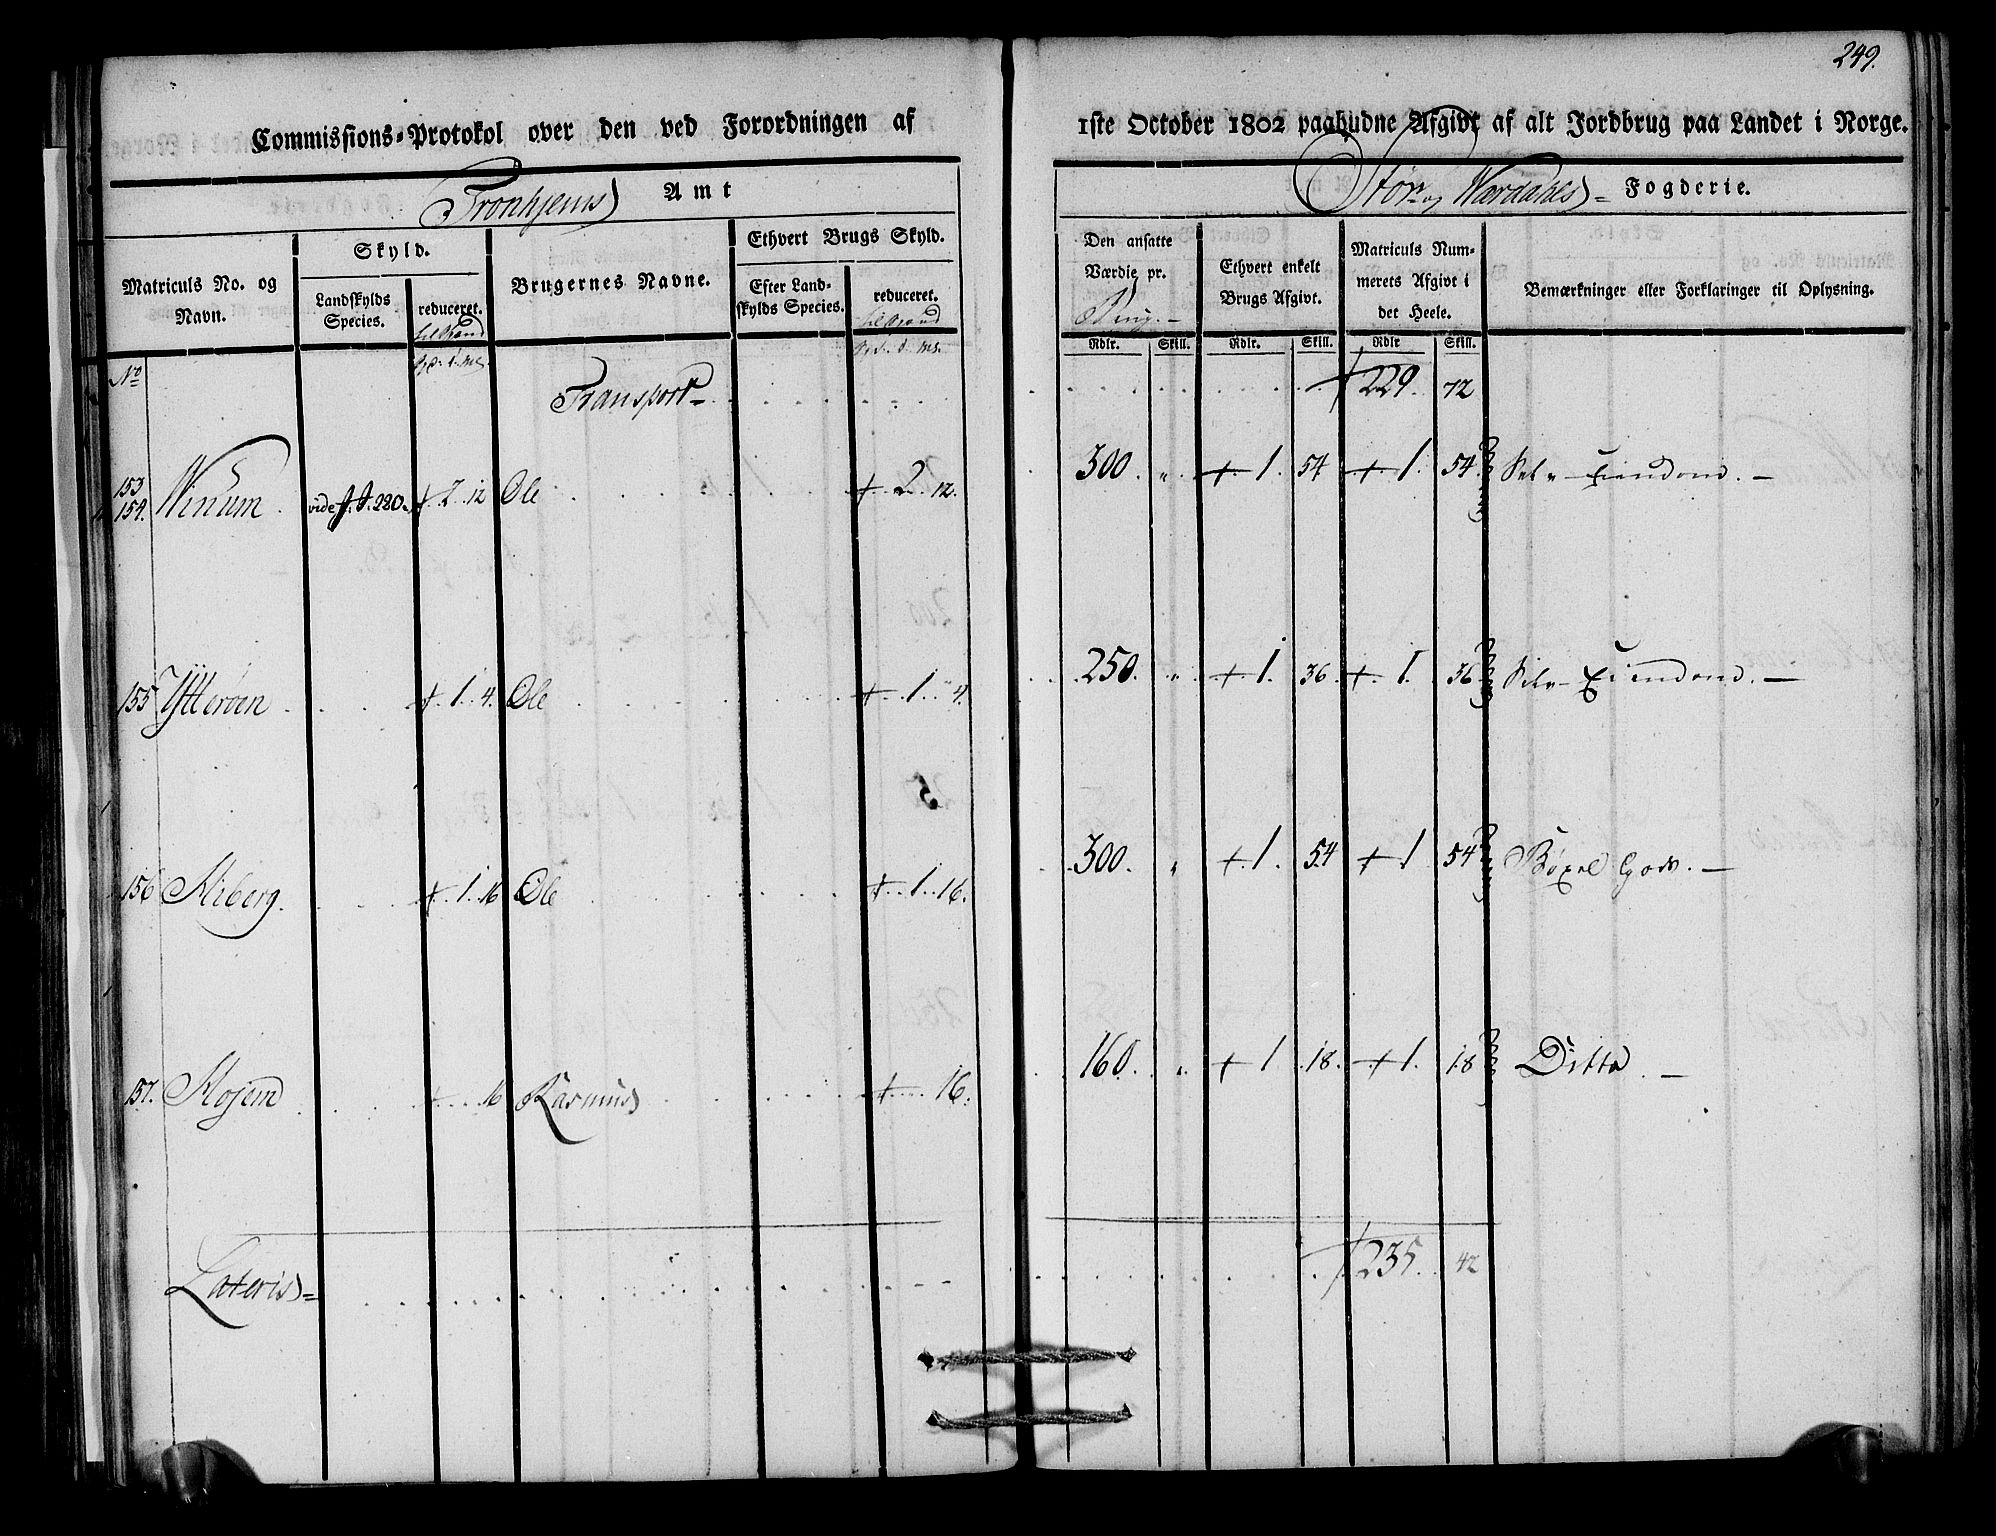 249.
Commissions-Protokol over den ved Forordningen af 1ste October 1802 paabudne Afgivt af alt Jordbrug paa Landet i Norge.
Tronhjems Amt
Stør og Værdahls Fogderie.
Matriculs No. og Navn.
Skyld.
Landskylds Species.
reduceret.
Brugernes Navne.
Ethvert Brugs Skyld.
Efter Landskylds Species.
reduceret.
Den ansatte Værdie pr.
Ethvert enkelt Brugs Afgivt.
Matriculs Nummerets Afgivt i det Heele.
Bemærkninger eller Forklaringer til Oplysning.
Rdlr. Skill. Rdlr. Skill. Rdlr Skill.
No
Transport 229. 72
153 154. Winum. vide 2. 12 Ole 2. 12. 300. " 1. 54 1. 54 Selv Eiendom.
155 Ytterøen 1. 4. Ole 1. 4. 250. " 1. 36. 1. 36 Selv Eiendom.
156 Kiberg. 1. 16 Ole 1. 16. 300. " 1. 54 1 54 Bøxel Gods.
157. Kojem 16 Rasmus 16. 160. " 1 18. 1. 18 Ditto.
Lateris 235. 42